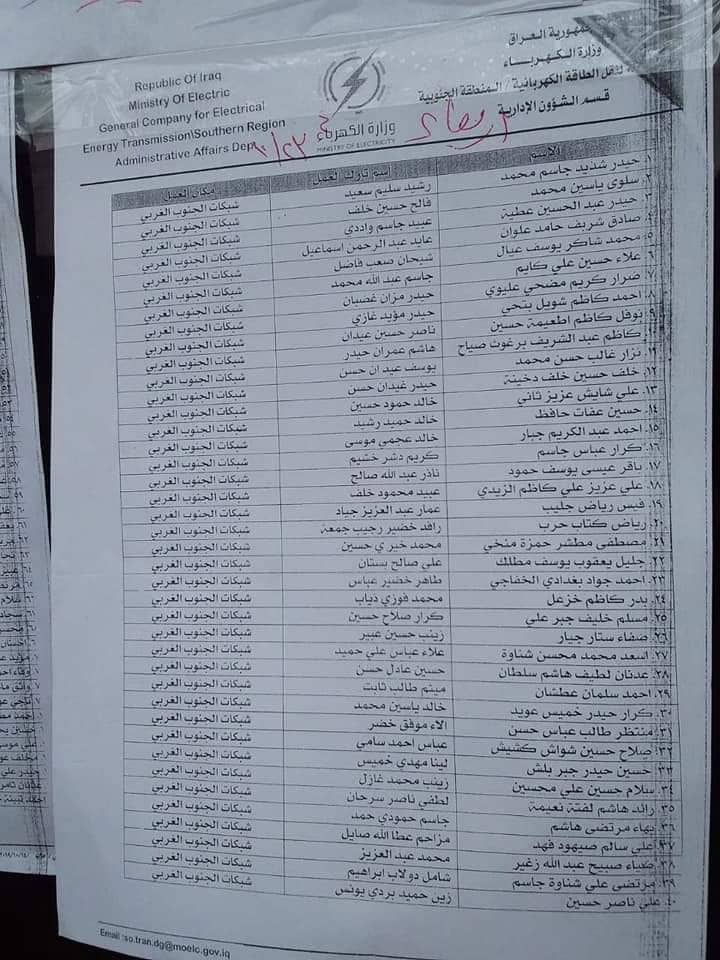 Republic Of Iraq
Ministry Of Electric
General Company for Electrical
Energy Transmission\Southern Region
Administrative Affairs Dep
وزارة الكهرباء
MINISTRY OF ELECTRICITY
جمهورية العراق
وزارة الكهرباء
لنقل الطاقة الكهربائية / المنطقة الجنوبية
قسم الشؤون الإدارية
اربعاء
الاسم اسم تارك العمل مكان العمل
١. حيدر شديد جاسم محمد رشيد سليم سعيد شبكات الجنوب الغربي
٢. سلوى ياسين محمد فالح حسين خلف شبكات الجنوب الغربي
٣. حيدر عبد الحسين عطية عبيد جاسم وادي شبكات الجنوب الغربي
٤. صادق شريف حامد علوان عايد عبد الرحمن اسماعيل شبكات الجنوب الغربي
٥. محمد شاكر يوسف عيال شبحان صعب فاضل شبكات الجنوب الغربي
٦. علاء حسين علي كايم جاسم عبد الله محمد شبكات الجنوب الغربي
٧. ضرار كريم مضحي عليوي حيدر مزان غضبان شبكات الجنوب الغربي
٨. احمد كاظم شويل يتحي حيدر مؤيد غازي شبكات الجنوب الغربي
٩. نوفل كاظم اطعيمة حسين ناصر حسين عيدان شبكات الجنوب الغربي
كاظم عبد الشريف برغوث صياح هاشم عمران حيدر شبكات الجنوب الغربي
نزار غالب حسن محمد يوسف عيدان حسن شبكات الجنوب الغربي
١٢. خلف حسين خلف دخينة حيدر غيدان حسن شبكات الجنوب الغربي
١٣. علي شايش عزيز ثاني خالد حمود حسين شبكات الجنوب الغربي
١٤. حسين عفات حافظ خالد حميد رشيد شبكات الجنوب الغربي
١٥. احمد عبد الكريم جبار خالد عجمي موسى شبكات الجنوب الغربي
١٦. كرار عباس جاسم كريم دشر خشيم شبكات الجنوب الغربي
١٧. باقر عيسى يوسف حمود نادر عبد الله صالح شبكات الجنوب الغربي
١٨. علي عزيز علي كاظم الزيدي عبيد محمود خلف شبكات الجنوب الغربي
١٩. قيس رياض جليب عمار عبد العزيز جياد شبكات الجنوب الغربي
٢٠. رياض كتاب حرب رافد خضير رجيب جمعة شبكات الجنوب الغربي
٢١. مصطفى مطشر حمزة منخي محمد خيري حسين شبكات الجنوب الغربي
٢٢. جليل يعقوب يوسف مطلك علي صالح بستان شبكات الجنوب الغربي
٢٣. احمد جواد بغدادي الخفاجي طاهر خضير عباس شبكات الجنوب الغربي
٢٤. بدر كاظم خزعل محمد فوزي ذياب شبكات الجنوب الغربي
٢٥. مسلم خليف جبر علي كرار صلاح حسين شبكات الجنوب الغربي
٢٦. صفاء ستار جبار زينب حسين عبير شبكات الجنوب الغربي
٢٧. اسعد محمد محسن شناوة علاء عباس علي حميد شبكات الجنوب الغربي
٢٨. عدنان لطيف هاشم سلطان حسين عادل حسن شبكات الجنوب الغربي
٢٩. احمد سلمان عطشان ميثم طالب ثابت شبكات الجنوب الغربي
٣٠. كرار حيدر خميس عويد خالد ياسين محمد شبكات الجنوب الغربي
٣١. منتظر طالب عباس حسن الاء موفق خضر شبكات الجنوب الغربي
٣٢. صلاح حسين شواش كشيش عباس احمد سامي شبكات الجنوب الغربي
٣٣. حسين حيدر جبر بلش لينا مهدي خميس شبكات الجنوب الغربي
٣٤. سلام حسين علي محيسن زينب محمد غازل شبكات الجنوب الغربي
٣٥. رائد هاشم لفتة نعيمة لطفي ناصر سرحان شبكات الجنوب الغربي
٣٦. بهاء مرتضى هاشم جاسم حمودي حمد شبكات الجنوب الغربي
٣٧. علي سالم صيهود فهد مزاحم عطا الله صايل شبكات الجنوب الغربي
٣٨. ضياء صبيح عبد الله زغير محمد عبد العزيز شبكات الجنوب الغربي
٣٩. مرتضى علي شناوة جاسم شامل دولاب ابراهيم شبكات الجنوب الغربي
٤٠. علي ناصر حسين زين حميد بردي يونس شبكات الجنوب الغربي
Email :so.tran.dg@moelc.gov.iq